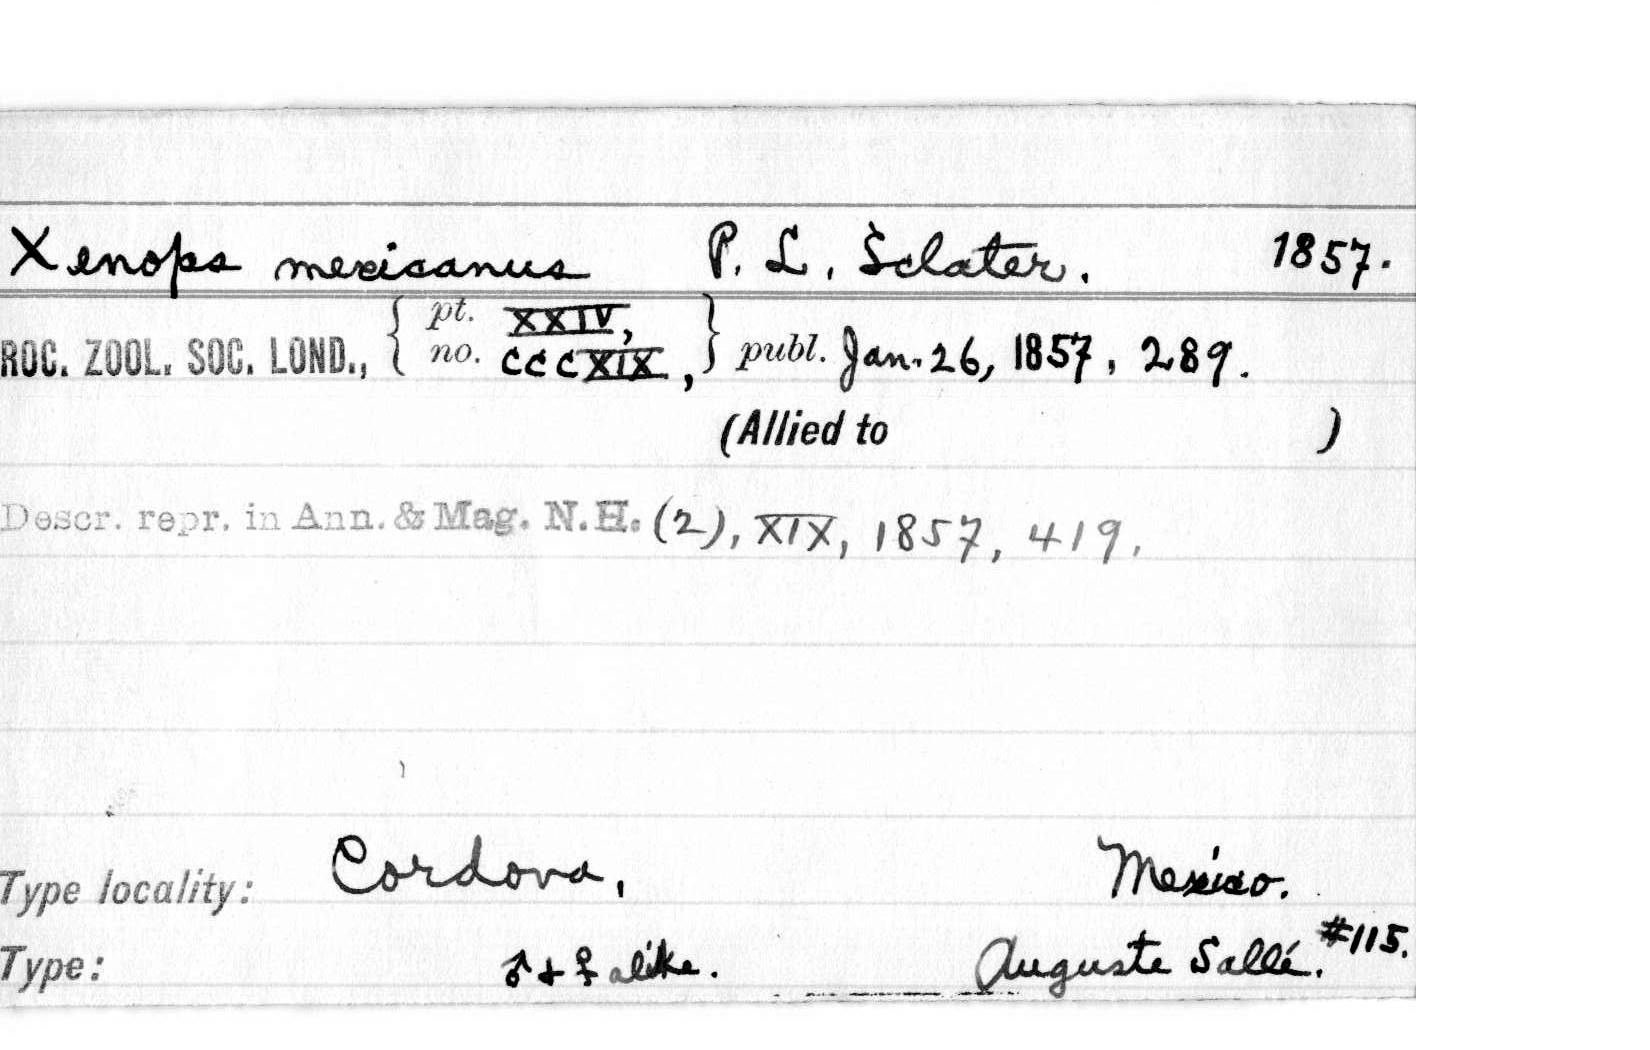 Xenops mexicanus P. L. Sclater. 1857.
ROC. ZOOL. SOC. LOND., { pt. XXIV, no. CCCXIX, } publ. Jan. 26, 1857, 289.
(Allied to )
Descr. repr. in Ann. & Mag. N.H. (2), XIX, 1857, 419.
Type locality: Cordova, Mexico.
Type: ♂ + ♀ alike. Auguste Sallé. #115.